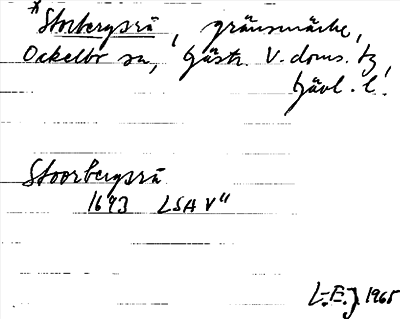 *Storbergsrå, gränsmärke,
Ockelbo sn, Gästr. V. doms. tg,
Gävl. l.
Stoorbergsrå
1693 LSA V"
L-E.J. 1965